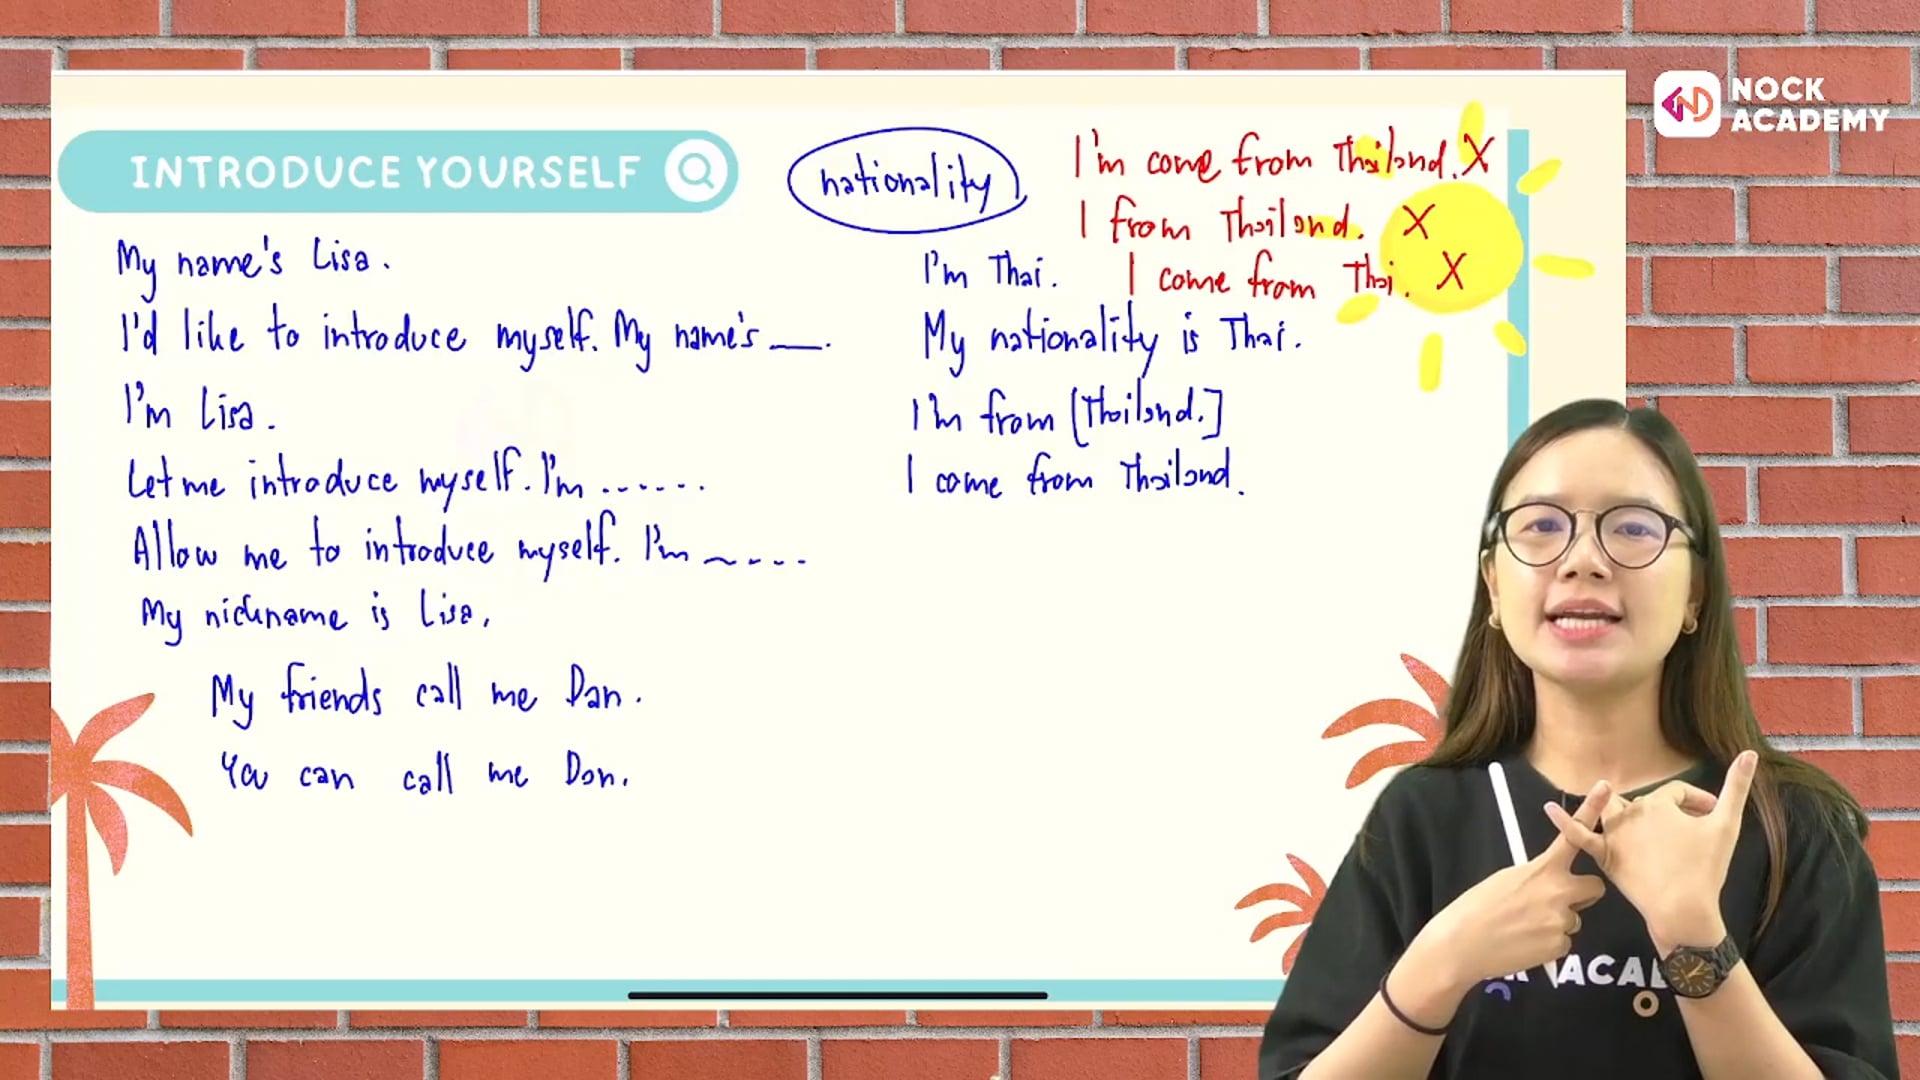 NOCK
ACADEMY
INTRODUCE YOURSELF
My name's Lisa.
I'd like to introduce myself. My name's __.
I'm Lisa.
Let me introduce myself. I'm ......
Allow me to introduce myself. I'm ~---
My nickname is Lisa.
My friends call me Dan.
You can call me Dan.
nationality
I'm come from Thailand. X
I from Thailand. X
I'm Thai. I come from Thai. X
My nationality is Thai.
I'm from [Thailand.]
I come from Thailand.